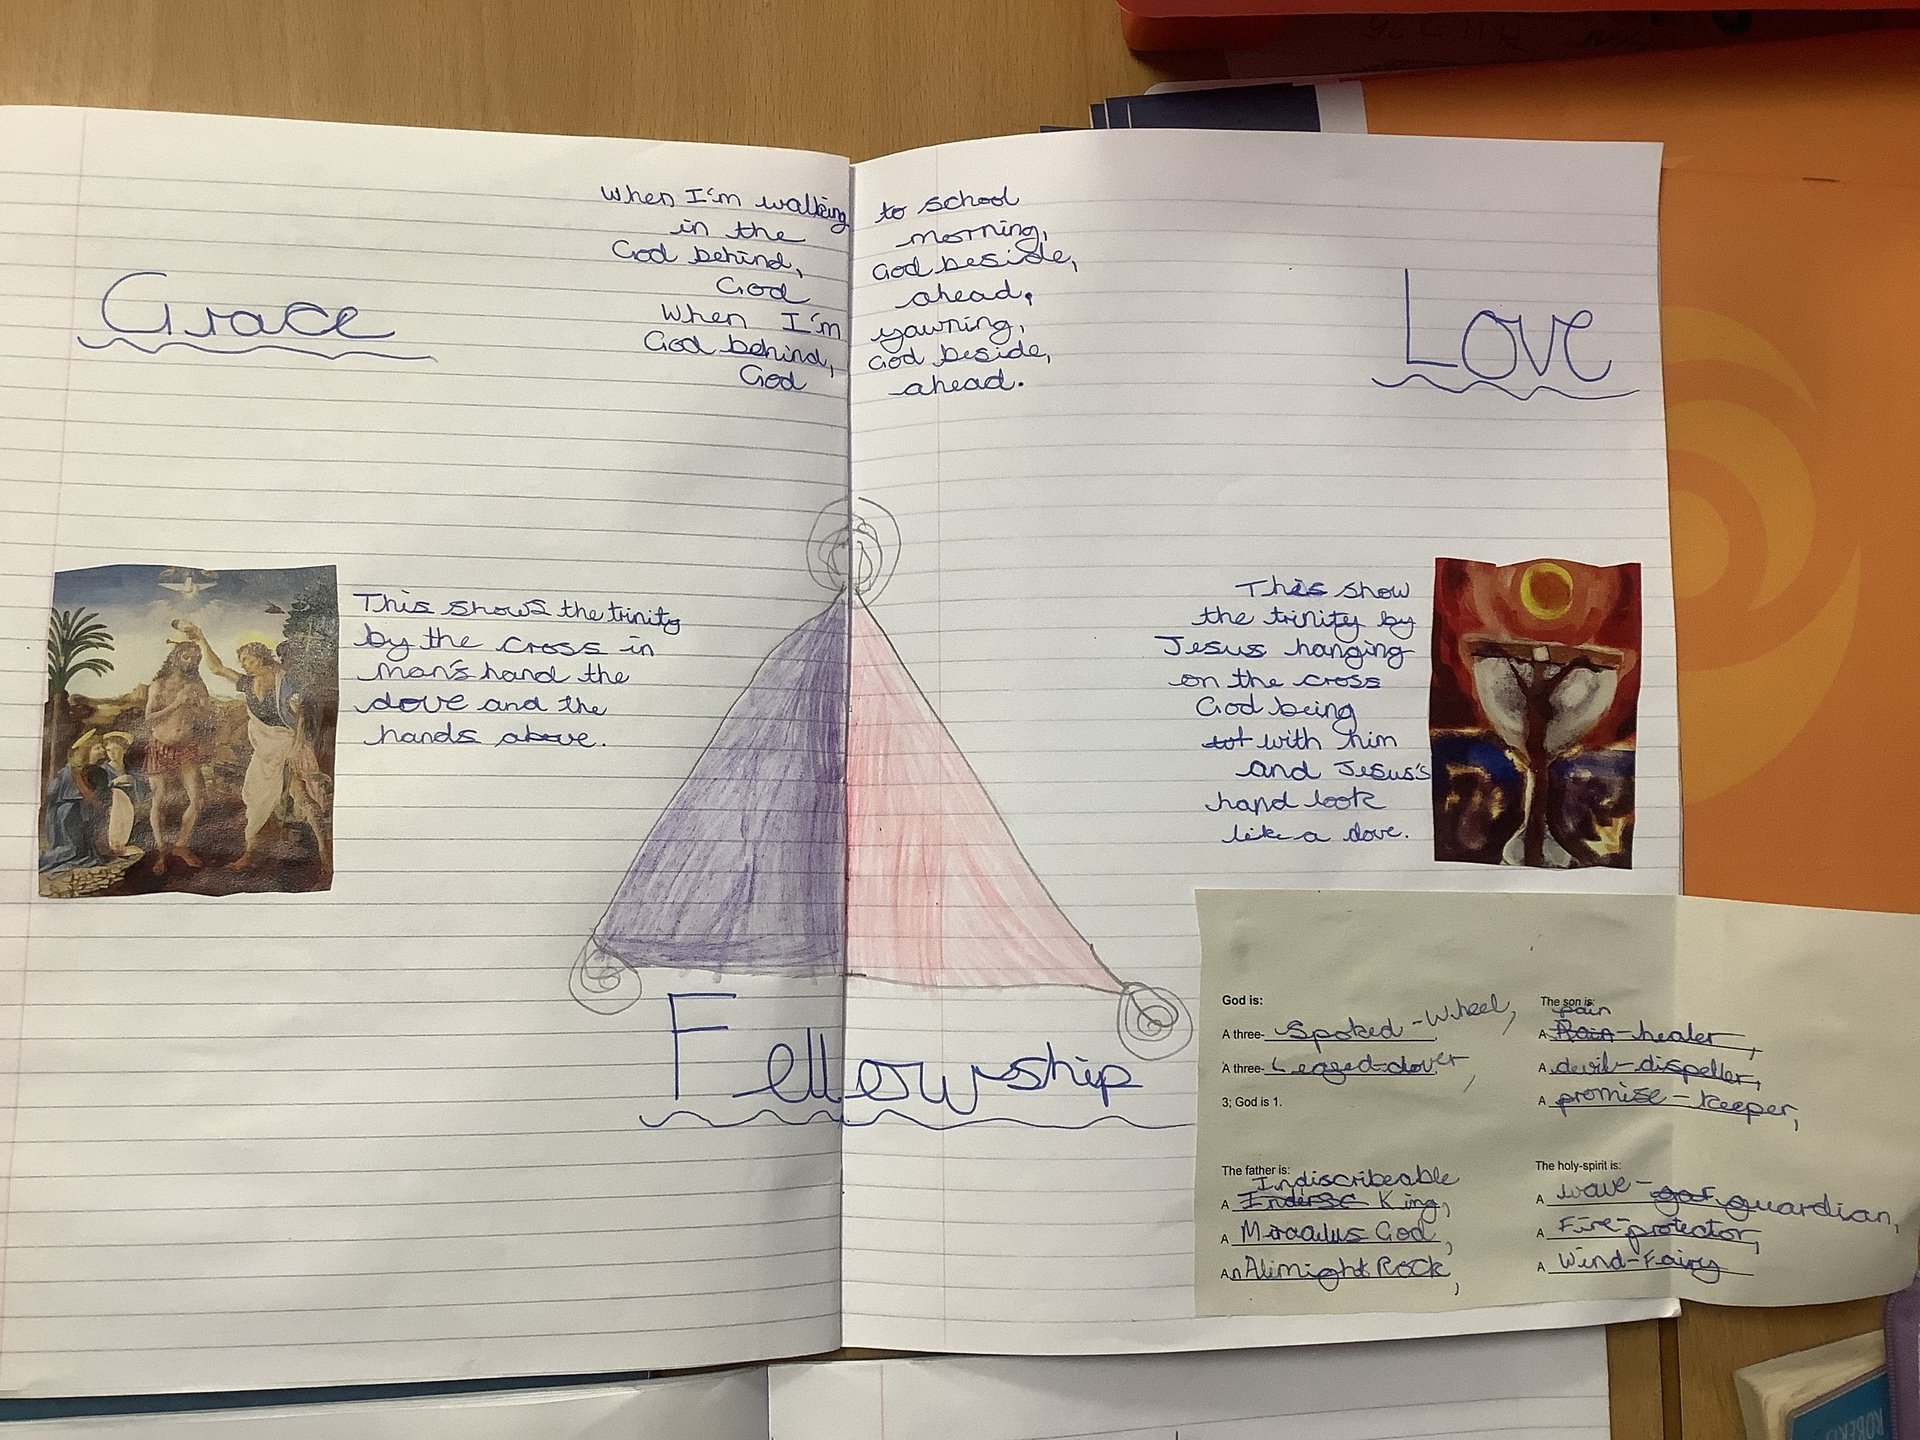 When I'm walking to school
in the morning,
God behind, God beside,
God ahead,
When I'm yawning,
God behind, God beside,
God ahead.
Grace
Love
This shows the trinity
by the cross in
man's hand the
dove and the
hands above.
This show
the trinity by
Jesus hanging
on the cross
God being
tot with him
and Jesus's
hand look
like a dove.
Fellowship
God is:
A three- Spoked-Wheel,
A three- Leaged-clover,
3; God is 1.
The son is:
pain
A Rain-healer,
A devil-dispeller,
A promise-keeper,
The father is:
Indiscribeable
A Indersc King,
A Miraculus God,
An Alimight Rock,
The holy-spirit is:
A wave-gar guardian,
A Fire-protector,
A Wind-Fairy